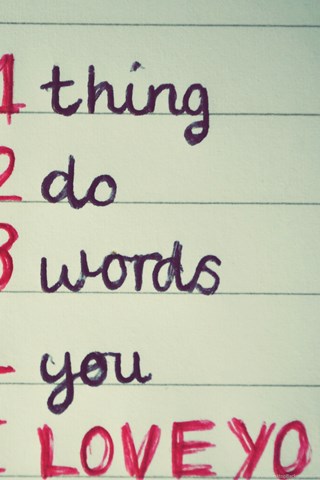 1 thing
2 do
3 words
you
I LOVE YO